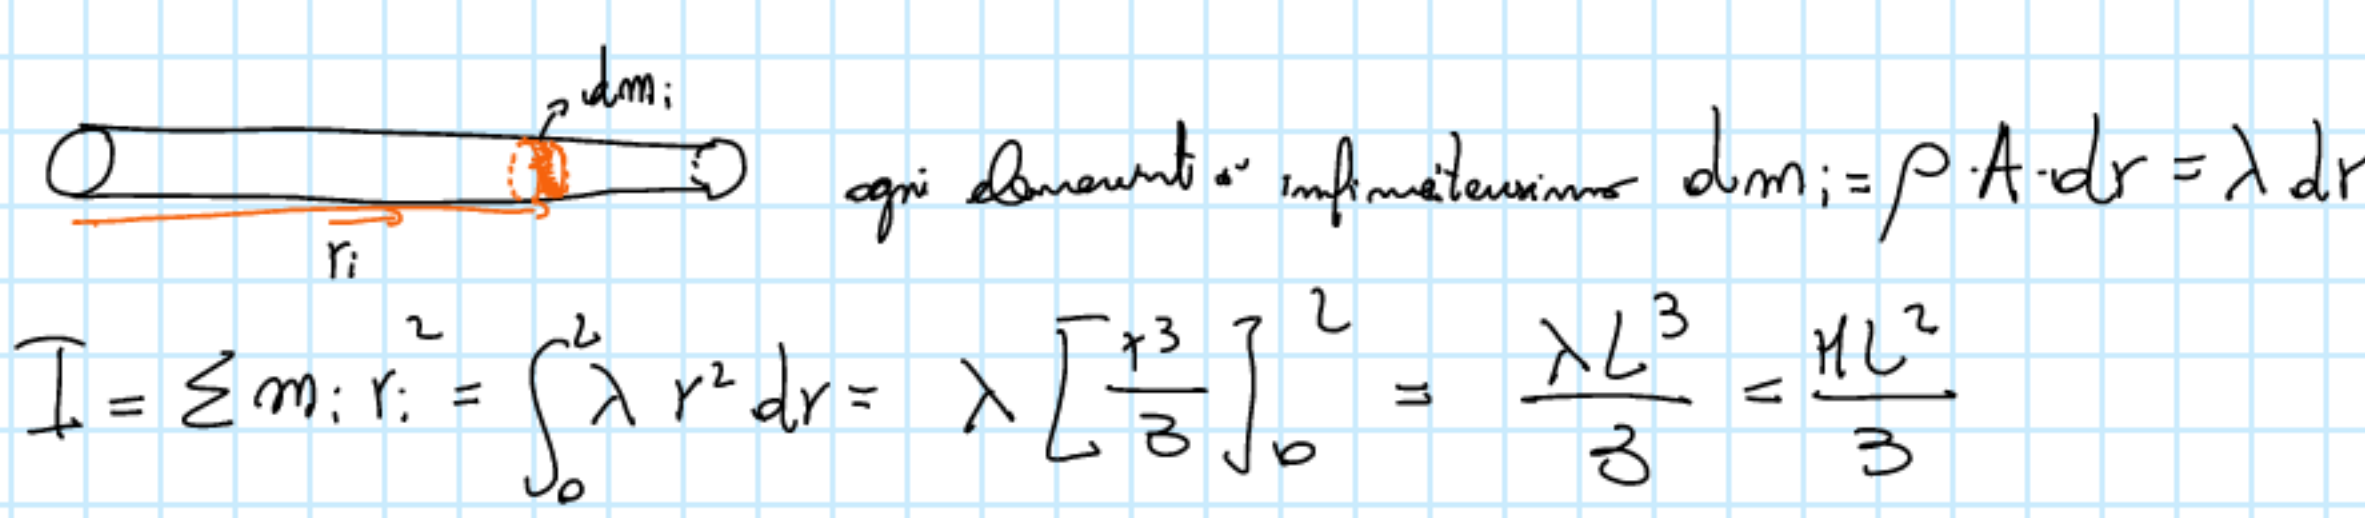 dmᵢ
ogni elemento infinitesimo dmᵢ = ρ · A · dr = λ dr
rᵢ
I = Σ mᵢ rᵢ² = ∫₀ᴸ λ r² dr = λ [r³/3]₀ᴸ = λL³/3 = ML²/3